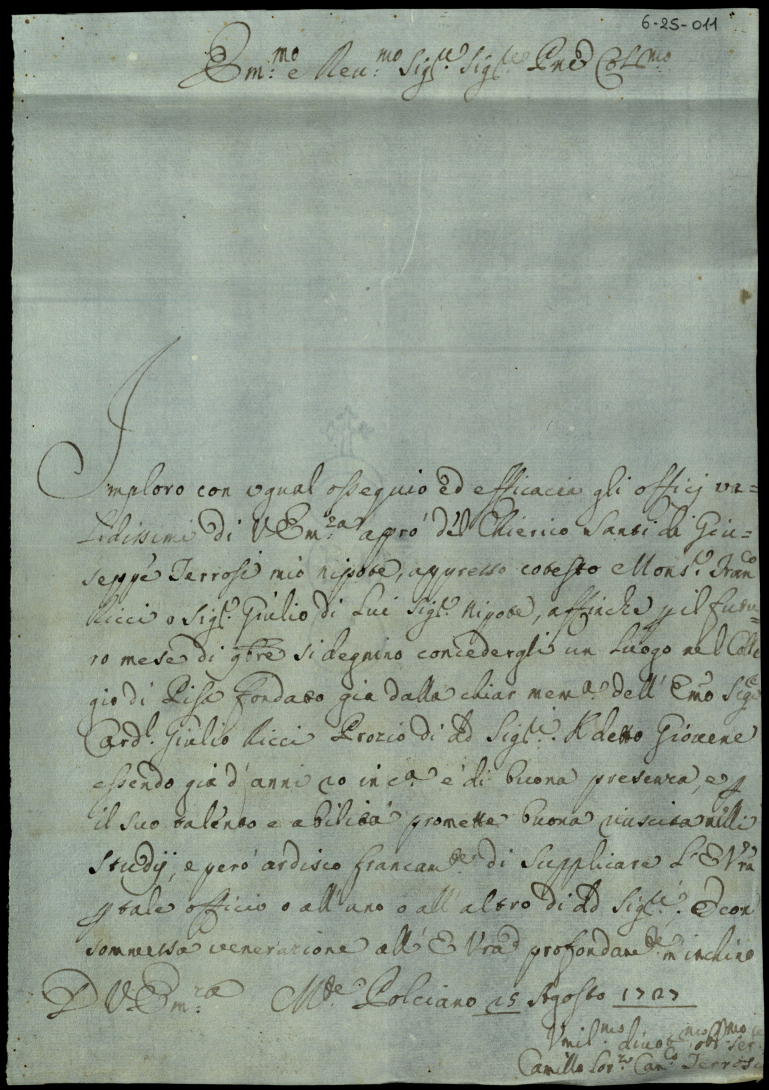 6-25-011
Em.mo e Reu.mo Sig.re Sig.re Pne Col.mo
Imploro con ugual ossequio ed efficacia gli officj va=
lidissimi di V Em.za a pro del Chierico Santi di Giu=
seppe Terrosi mio nipote, appresso cotesto Mons.r Franco
Ricci o Sig.r Giulio di lui Sig.r Nipote, affinche p il futu=
ro mese di 9bre si degnino concedergli un luogo nel Colle
gio di Pisa fondato già dalla chiar mem.a dell' Emo Sigr
Card.l Giulio Ricci Prozio di dd Sig.ri. Il detto Giovene
essendo già d'anni 20 in c.a e di buona presenza, e p
il suo talento e abilità promette buona riuscita nelli
Studij, e però ardisco francamte di supplicare L' E Vra
p tale officio o all' uno o all' altro di dd Sig.ri. Ed con
sommessa venerazione all' E Vra profondamte m'inchino
D V Em.za Mte Polciano 25 Agosto 1727
Vmil.mo diuot.mo obl.mo ser.
Camillo Lor.zo Can.co Terrosi